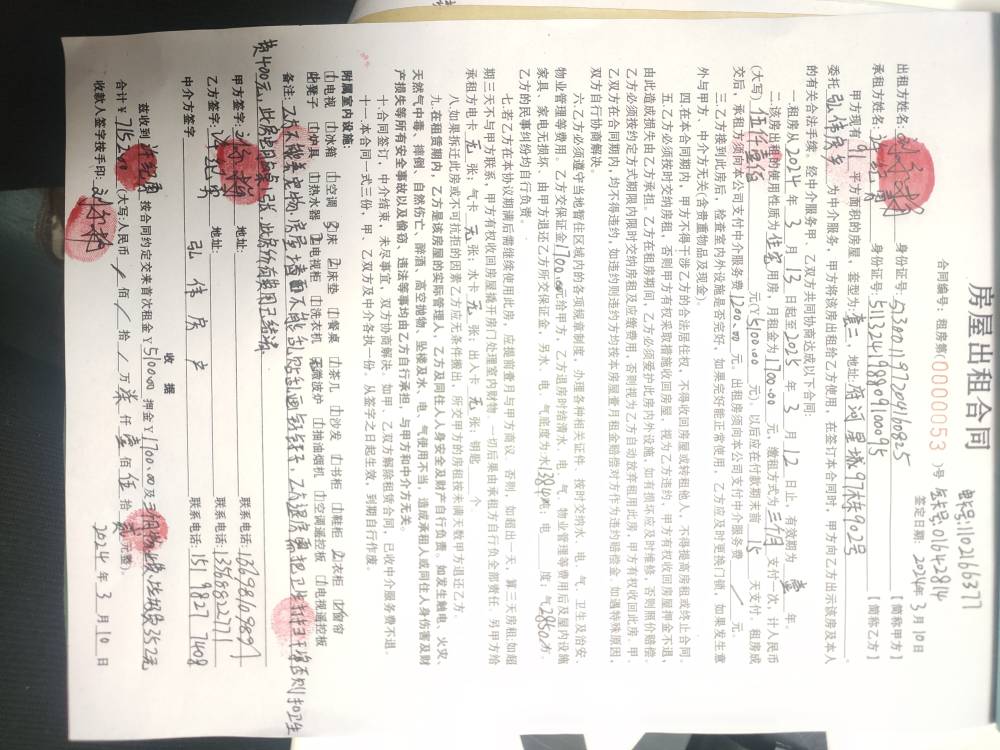 房屋出租合同
电号:1102166377
合同编号：租房第(0000053)号 气表号:01642814
签定日期：2024年3月10日
出租方姓名: 身份证号: [简称甲方]
承租方姓名: 身份证号:511324198809100095 [简称乙方]
甲方现有 91 平方面积的房屋，套型为:套二，地址:府河星城97栋902号
委托 弘伟房产 为中介服务，甲方将该房出租给乙方使用，在签订本合同时，甲方向乙方出示该房及本人
的有关合法手续。经中介服务甲、乙双方共同协商达成以下合同：
一.租房从2024年3月13日起至2025年3月12日止，有效期为 壹 年。
二.该房出租的使用性质为住家用房，月租金为1700.00元，缴租方式为三月支付一次，计人民币
(大写)伍仟壹佰元(￥5100.00元)以后应在付款期末前15天支付。租房成
交后，承租方须向本公司支付中介服务费1200.00元。出租房须向本公司支付中介服务费 / 元。
三.乙方接到此房后，检查室内外设施是否完好，如果完好能正常使用，乙方应及时更换门锁，如果发生意
外与甲方、中介方无关(含贵重物品及现金)。
四.在本合同期内，甲方不得干涉乙方的合法居住权，不得收回房屋或转租他人，不得提高房租或终止合同。
五.乙方必须按时交纳房租，否则甲方有权采取措施收回房屋，视为乙方违约，甲方有权收回房屋押金不退，
由此造成损失由乙方承担。乙方在租房期间，乙方必须爱护此房内外设施，如有损坏应及时维修，否则照价赔偿。
乙方必须按约定方式期限内限时交纳房租及应缴费用，否则视为乙方自动放弃租用此房，甲方有权收回此房，甲、
乙双方在合同期内，均不得违约，如违约则违约方均按本房屋壹月租金赔偿对方作为违约赔偿金。如遇特殊原因，
双方自行协商解决。
六.乙方必须遵守当地暂住区域内的各项规章制度，办理各种相关证件，按时交纳水、电、气、卫生及治安、
物业管理等费用。乙方交保证金1700.00元给甲方，乙方退房时结清水、电、气、物业管理等费用后及屋内设施
家具、家电无损坏、由甲方退还乙方所交保证金，另水、电、气底度为:水1384吨；电 度；气2860方.
乙方的民事纠纷均自行负责。
七.若乙方在本协议期满后需继续使用此房，应提前壹月与甲方商议，否则，如超出一天，算三天房租，如超
期三天不与甲方联系，甲方有权收回房屋撬开房门处理室内财物，一切后果由承租方自行负全部责任，另甲方给
承租方电卡 无 张；气卡 无 张；水卡 无 张；出入卡 无 张；钥匙 个。
八.如果拆迁此房或不可抗拒的因素乙方应无条件搬出，所交甲方的房租按未满天数甲方退还乙方。
九.在租赁期内，乙方是该房屋的实际管理人，乙方及同住人人身安全及财产自行负责。如发生触电、火灾、
天然气中毒、摔倒、自然伤亡、醉酒、高空抛物、坠楼及水、电、气使用不当、造成承租人或同住人身伤害及财
产损失等所有安全事故以及偷窃、违法等事均由乙方自行承担，与甲方和中介方无关。
十.合同签订，中介结束，未尽事宜，双方协商解决，如甲、乙双方解除租赁合同，已收中介服务费不退。
十一.本合同一式三份，甲、乙双方及中介各执一份。从签字之日起生效，到期自行作废。
附属室内设施:
电视 冰箱 空调 床 床垫 餐桌 茶几 沙发 书柜 鞋柜 衣柜 窗帘
凳子 炉具 热水器 电视柜 洗衣机 微波炉 抽油烟机 空调遥控板 电视遥控板
备注:乙方不能养宠物，房屋墙面不能乱贴乱画钉钉子，乙方退房需把卫生打扫干净否则扣卫生
费400元，
甲方签字: 地址: 联系电话:13698169897
乙方签字: 地址: 联系电话:13568822771
中介方签字 弘伟房产 联系电话:151 9827 7408
收 据
兹收到 按合同约定交来首次租金￥5100.00 押金￥1700.00及 352元
合计￥7152.00 (大写:人民币 / 佰 / 拾 / 万 柒 仟 壹 佰 伍 拾 贰 元整)。
收款人签字按手印: 2024年3月10日